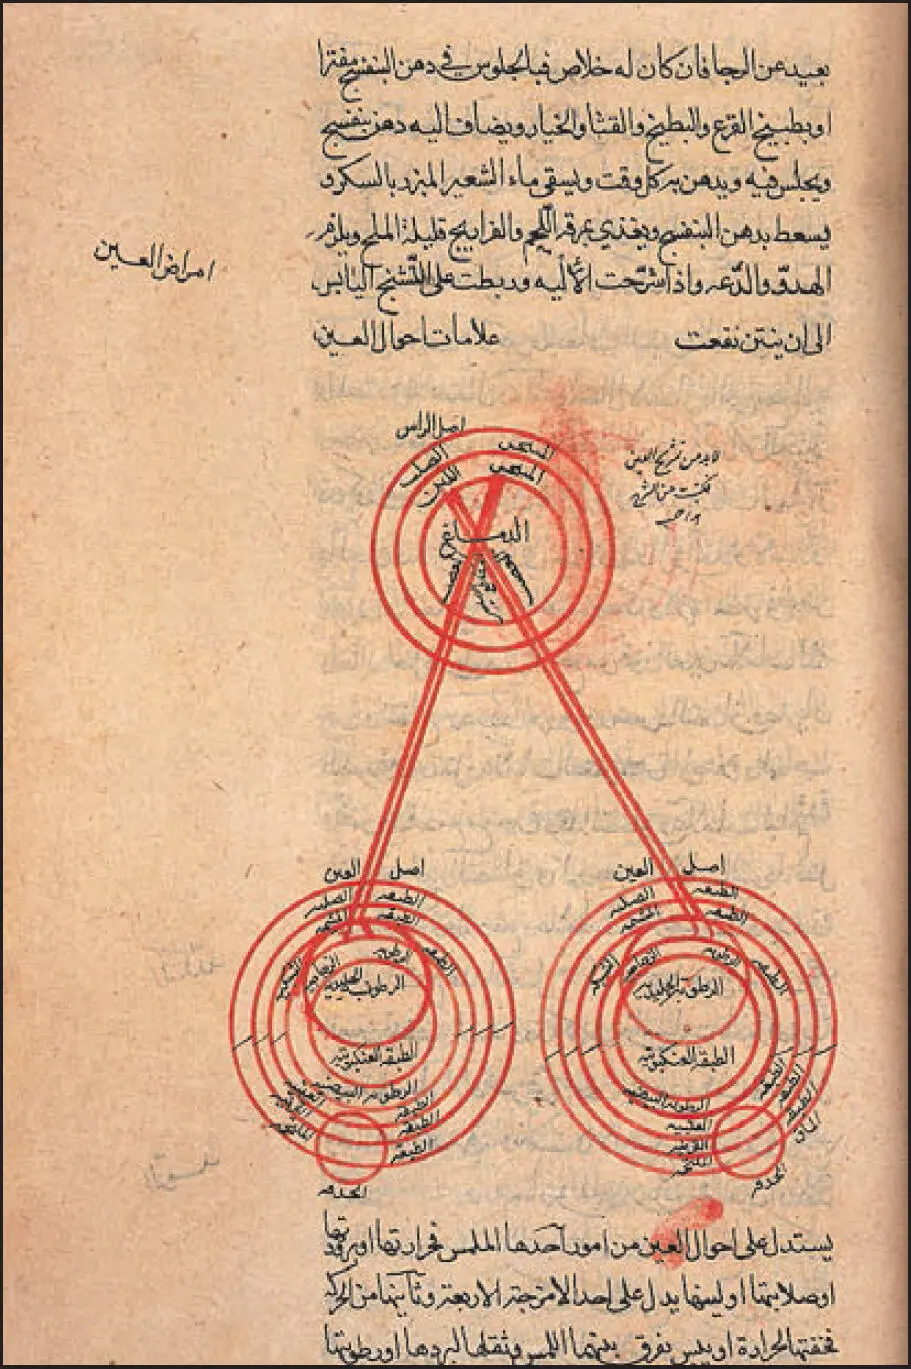 بعيد عن الرجا فان كان له خلاص فبالجلوس في دهن البنفسج مفترا
او بطبيخ القرع والبطيخ والقثا والخيار ويضاف اليه دهن بنفسج
ويجلس فيه ويدهن به كل وقت ويسقى ماء الشعير المبرد بالسكر و
يسعط بدهن البنفسج ويغذي بمرقة اللحم والفراريج قليلة الملح ويلزم
الهدوّ والدّعه واذا شرّحت الألْيه وربطت على التّشنج اليابس
الى ان ينتن نفعت
علامات احوال العين
امراض العين
لابد من تشريح العين
فكتبت من الشرح
اصل الراس
الصلب
اللين
الدماغ
اصل العين
الطبقه الصلبيه
الطبقه المشيميه
الطبقه الشبكيه
الرطوبه الزجاجيه
الرطوبه الجليديه
الطبقه العنكبوتيه
الرطوبه البيضيه
الطبقه العنبيه
الطبقه القرنيه
الطبقه الملتحمه
الحدقه
اصل العين
الطبقه الصلبيه
الطبقه المشيميه
الطبقه الشبكيه
الرطوبه الزجاجيه
الرطوبه الجليديه
الطبقه العنكبوتيه
الرطوبه البيضيه
الطبقه العنبيه
الطبقه القرنيه
الطبقه الملتحمه
الحدقه
يستدل على احوال العين من امور احدها الملمس فحرارتها او برودتها
او صلابتها او لينها يدل على احد الامزجة الاربعة وثانيها من الحركة
فخفتها لحرارة او يبس يفرق بينهما اللمس وثقلها لبرد او رطوبة